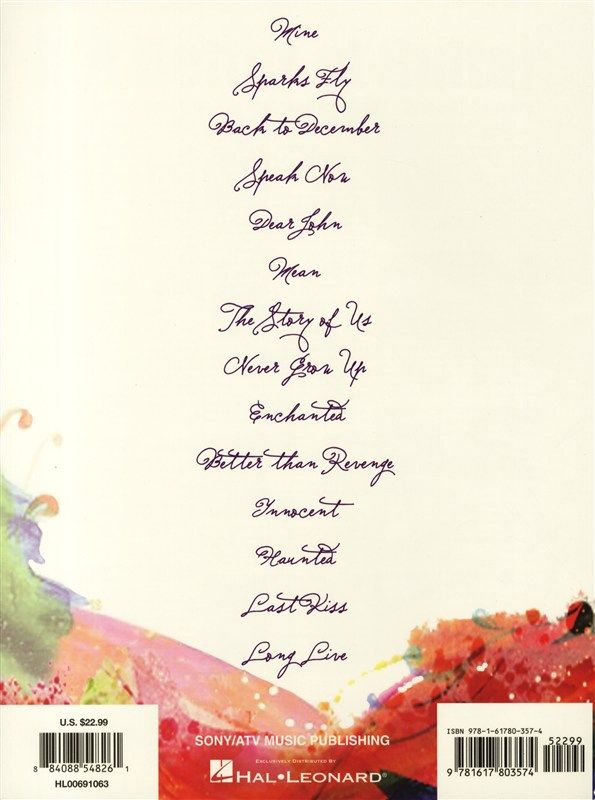 Mine
Sparks Fly
Back to December
Speak Now
Dear John
Mean
The Story of Us
Never Grow Up
Enchanted
Better than Revenge
Innocent
Haunted
Last Kiss
Long Live
U.S. $22.99
8 84088 54826 1
HL00691063
SONY/ATV MUSIC PUBLISHING
EXCLUSIVELY DISTRIBUTED BY
HAL•LEONARD®
ISBN 978-1-61780-357-4
52299
9 781617 803574